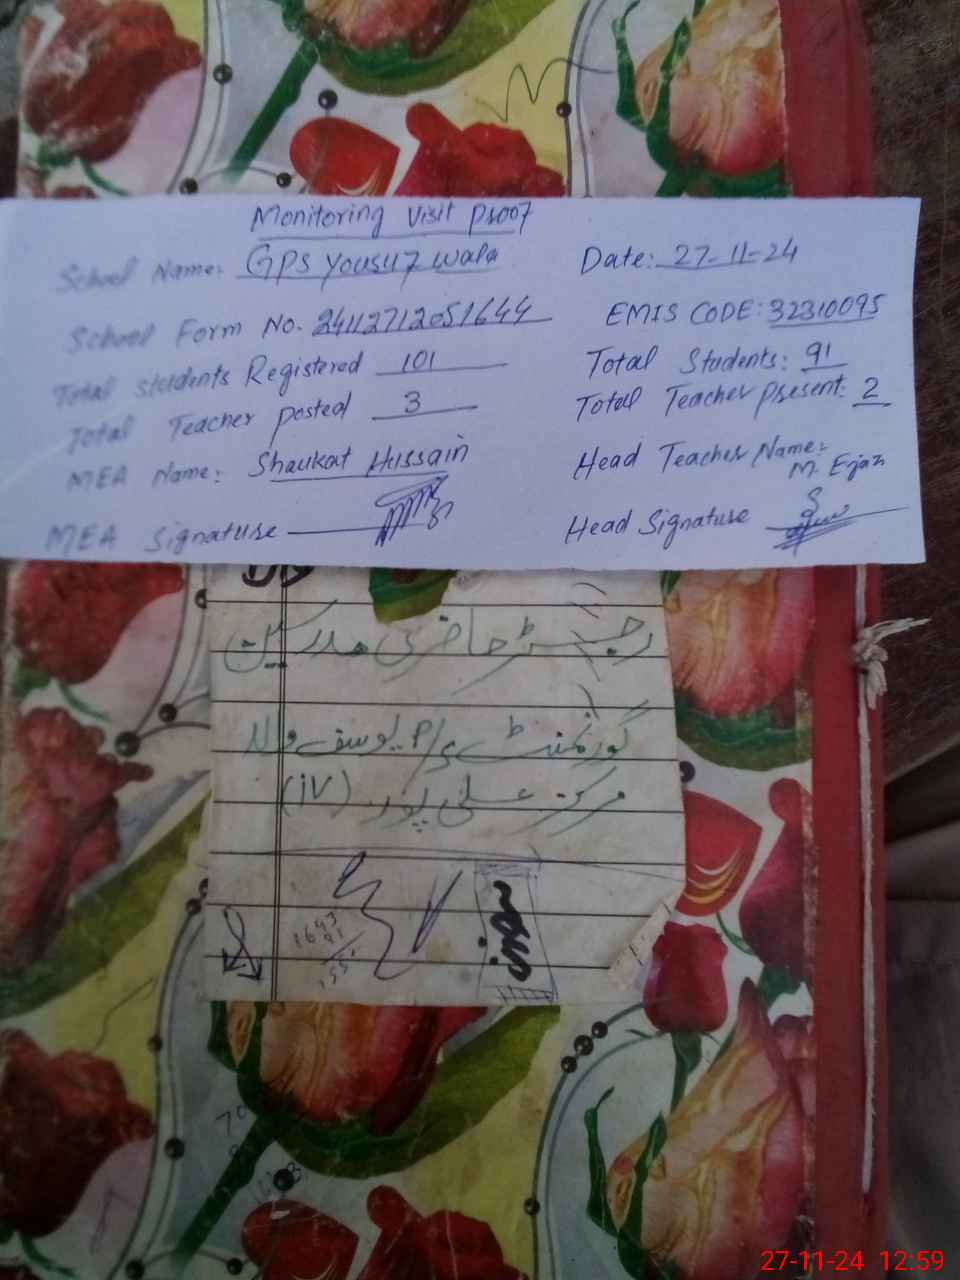 Monitoring Visit Proof
School Name: GPS Yousuf Wala
Date: 27-11-24
School Form No. 24112712051644
EMIS CODE: 32310095
Total Students Registered 101
Total Students: 91
Total Teacher posted 3
Total Teacher Present: 2
MEA Name: Shaukat Hussain
Head Teacher Name: M. Ejaz
MEA Signature
Head Signature
رجسٹر حاضری مدرسین
گورنمنٹ P/S یوسف والا
مرکز علی پور (iv)
27-11-24 12:59